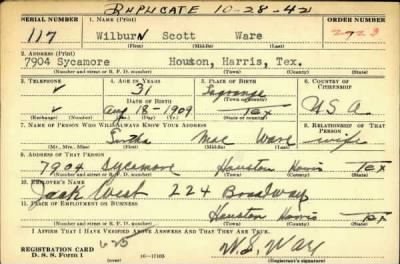 DUPLICATE 10-28-42
SERIAL NUMBER 1. NAME (Print) ORDER NUMBER
117 Wilburn Scott Ware 2723
(First) (Middle) (Last)
2. ADDRESS (Print)
7904 Sycamore Houston, Harris, Tex.
(Number and street or R. F. D. number) (Town) (County) (State)
3. TELEPHONE 4. AGE IN YEARS 5. PLACE OF BIRTH 6. COUNTRY OF CITIZENSHIP
31 Lagrange
DATE OF BIRTH (Town or county)
Aug 18-1909 Tex U S A.
(Exchange) (Number) (Mo.) (Day) (Yr.) (State or country)
7. NAME OF PERSON WHO WILL ALWAYS KNOW YOUR ADDRESS 8. RELATIONSHIP OF THAT PERSON
Mae Ware wife
(Mr., Mrs., Miss) (First) (Middle) (Last)
9. ADDRESS OF THAT PERSON
7904 Sycamore Houston Harris Tex
(Number and street or R. F. D. number) (Town) (County) (State)
10. EMPLOYER'S NAME
Jack West 224 Broadway
11. PLACE OF EMPLOYMENT OR BUSINESS
Houston Harris Tex
(Number and street or R. F. D. number) (Town) (County) (State)
I AFFIRM THAT I HAVE VERIFIED ABOVE ANSWERS AND THAT THEY ARE TRUE.
REGISTRATION CARD
D. S. S. Form 1 (over) 16-17105
(Registrant's signature)